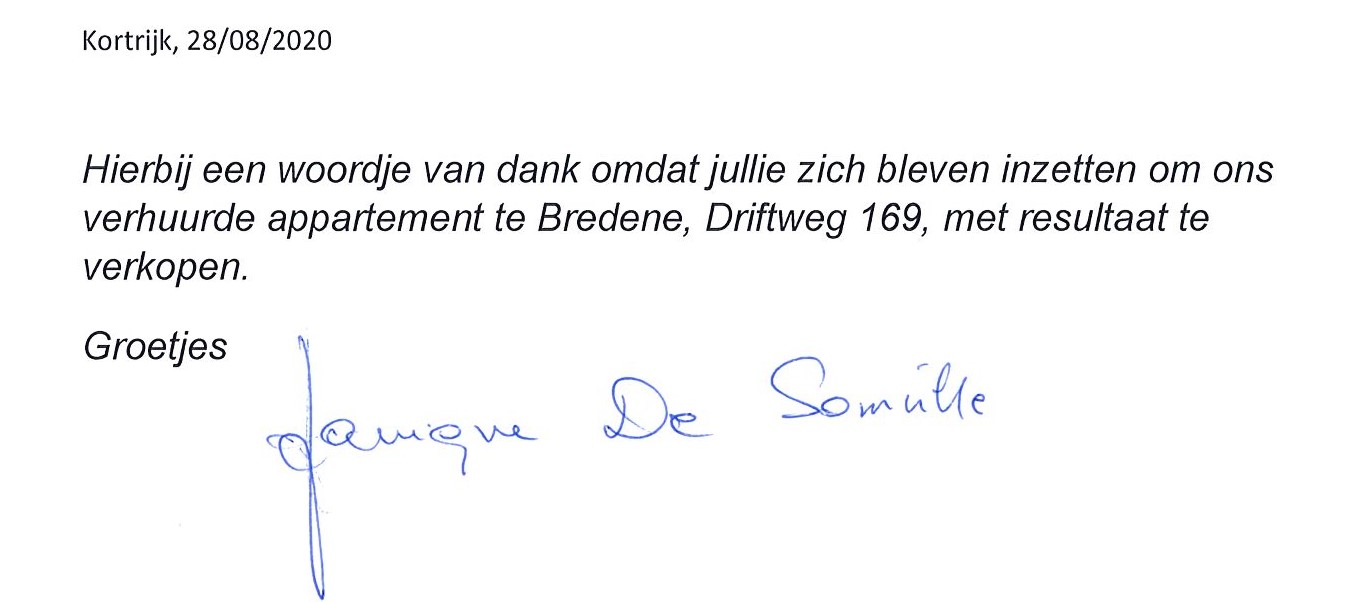 Kortrijk, 28/08/2020
Hierbij een woordje van dank omdat jullie zich bleven inzetten om ons
verhuurde appartement te Bredene, Driftweg 169, met resultaat te
verkopen.
Groetjes
Janique De Somville